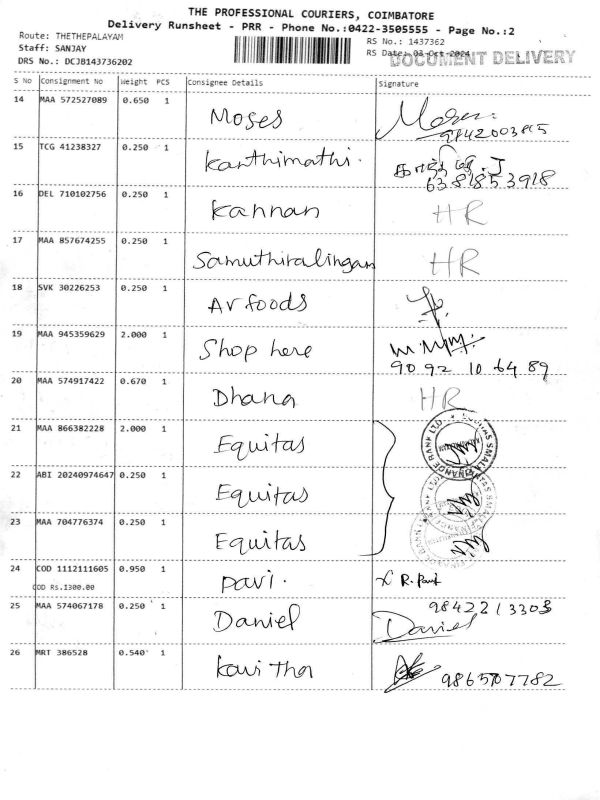 THE PROFESSIONAL COURIERS, COIMBATORE
Delivery Runsheet - PRR - Phone No.:0422-3505555 - Page No.:2
Route: THETHEPALAYAM
Staff: SANJAY
DRS No.: DCJB143736202
RS No.: 1437362
RS Date: 03-Oct-2024
DOCUMENT DELIVERY
S No Consignment No Weight PCS Consignee Details Signature
14 MAA 572527089 0.650 1 Moses
15 TCG 41238327 0.250 1 Kanthimathi. 6381853918
16 DEL 710102756 0.250 1 Kannan HR
17 MAA 857674255 0.250 1 Samuthiralingam HR
18 SVK 30226253 0.250 1 AV foods
19 MAA 945359629 2.000 1 Shop here
90 92 10 64 89
20 MAA 574917422 0.670 1 Dhana HR
21 MAA 866382228 2.000 1 Equitas
22 ABI 20240974647 0.250 1 Equitas
23 MAA 704776374 0.250 1 Equitas
24 COD 1112111605 0.950 1 pavi.
COD Rs.1300.00
25 MAA 574067178 0.250 1 Daniel 9842213303
Daniel
26 MRT 386528 0.540 1 Kavitha